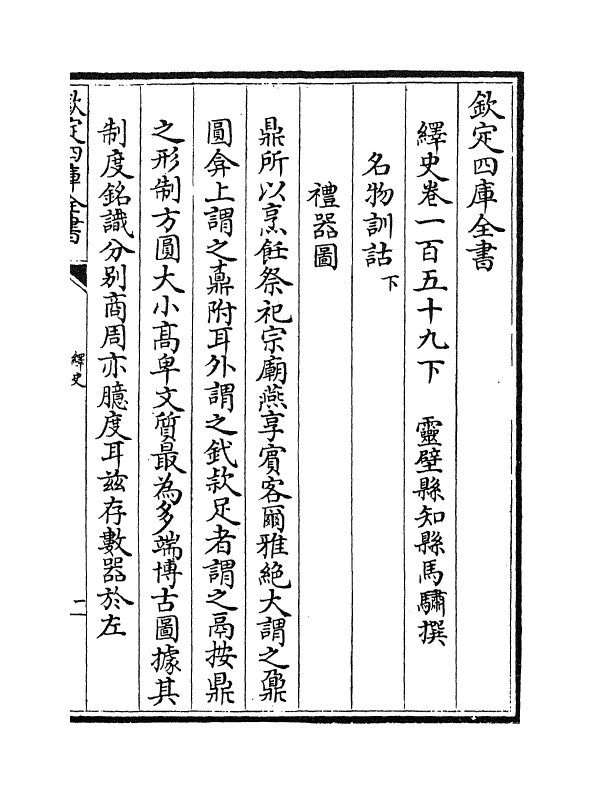 欽定四庫全書
繹史卷一百五十九下　靈壁縣知縣馬驌撰
名物訓詁下
禮器圖
鼎所以烹飪祭祀宗廟燕享賓客爾雅絶大謂之鼐
圓弇上謂之鼒附耳外謂之釴款足者謂之鬲按鼎
之形制方圓大小髙卑文質最為多端博古圖據其
制度銘識分别商周亦臆度耳兹存數器於左
欽定四庫全書
繹史
二